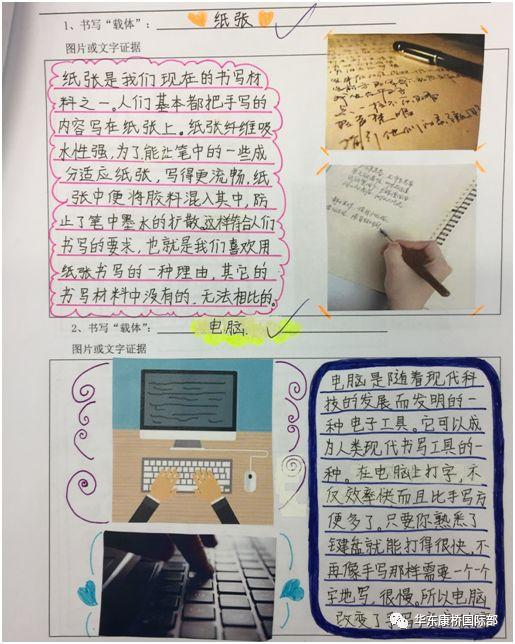 1、书写“载体”： 纸张
图片或文字证据
纸张是我们现在的书写材
料之一。人们基本都把手写的
内容写在纸张上。纸张纤维吸
水性强，为了能让笔中的一些成
分适应纸张，写得更流畅，纸
张中便将胶料混入其中，防
止了笔中墨水的扩散，这样符合人们
书写的要求，也就是我们喜欢用
纸张书写的一种理由，其它的
书写材料中没有的，无法相比的。
2、书写“载体”： 电脑
图片或文字证据
电脑是随着现代科
技的发展而发明的一
种电子工具。它可以成
为人类现代书写工具的一
种。在电脑上打字，不
仅效率快而且比手写方
便多了。只要你熟悉了
键盘就能打得很快，不
再像手写那样需要一个个
字地写，很慢。所以电脑
改变了
华东康桥国际部